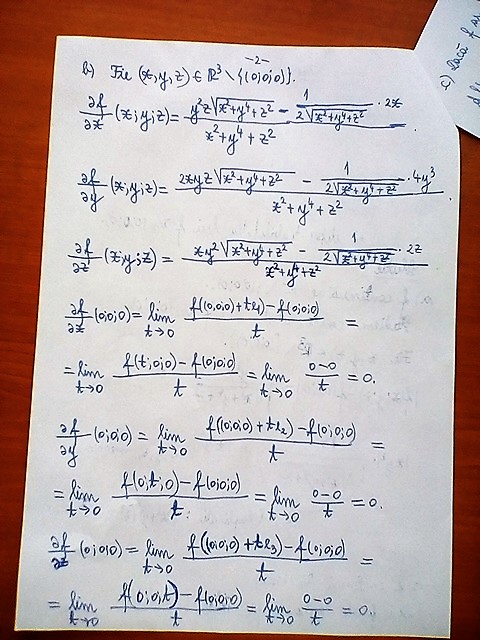 -2-
b) Fie (x;y;z) ∈ ℝ³ \ {(0;0;0)}.
∂f/∂x (x;y;z) = (y²z√(x²+y⁴+z²) − 1/(2√(x²+y⁴+z²)) · 2x) / (x²+y⁴+z²)
∂f/∂y (x;y;z) = (2xyz√(x²+y⁴+z²) − 1/(2√(x²+y⁴+z²)) · 4y³) / (x²+y⁴+z²)
∂f/∂z (x;y;z) = (xy²√(x²+y⁴+z²) − 1/(2√(x²+y⁴+z²)) · 2z) / (x²+y⁴+z²)
∂f/∂x (0;0;0) = lim t→0 (f((0;0;0)+te₁) − f(0;0;0)) / t =
= lim t→0 (f(t;0;0) − f(0;0;0)) / t = lim t→0 (0−0)/t = 0.
∂f/∂y (0;0;0) = lim t→0 (f((0;0;0)+te₂) − f(0;0;0)) / t =
= lim t→0 (f(0;t;0) − f(0;0;0)) / t = lim t→0 (0−0)/t = 0.
∂f/∂z (0;0;0) = lim t→0 (f((0;0;0)+te₃) − f(0;0;0)) / t =
= lim t→0 (f(0;0;t) − f(0;0;0)) / t = lim t→0 (0−0)/t = 0.
a) Dacă